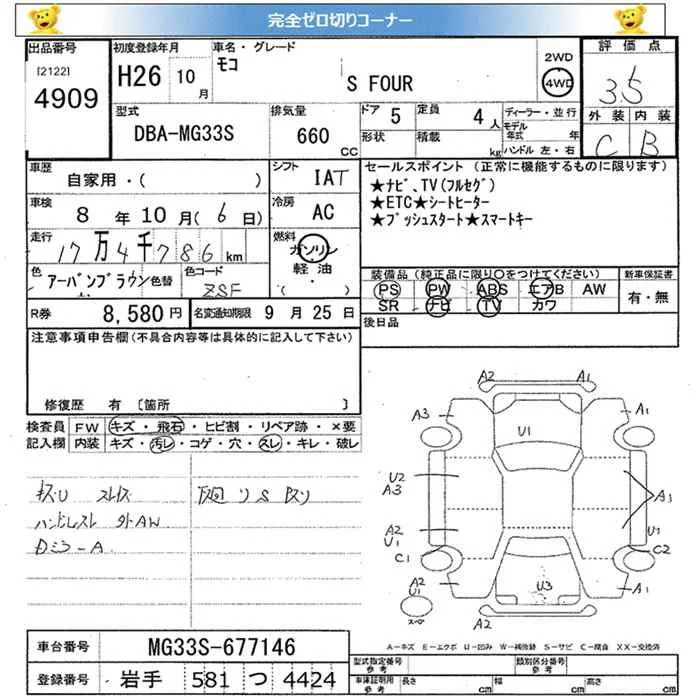 完全ゼロ切りコーナー
出品番号
[2122]
4909
初度登録年月
H26 10月
車名・グレード
モコ
S FOUR
2WD
4WD
評価点
3.5
外装 内装
C B
型式
DBA-MG33S
排気量
660 CC
ドア 5
定員 4人
形状
積載 kg
ディーラー・並行
モデル年式 年
ハンドル 左・右
車歴
自家用・( )
シフト
IAT
車検
8年10月(6日)
冷房
AC
走行
17万4千786km
燃料
ガソリン
軽油
( )
色
アーバンブラウン 色替
色コード
ZSF
R券
8,580円
名変通知期限 9月25日
セールスポイント (正常に機能するものに限ります)
★ナビ、TV(フルセグ)
★ETC★シートヒーター
★プッシュスタート★スマートキー
装備品 (純正品に限り○をつけてください)
新車保証書
PS PW ABS エアB AW
SR ナビ TV カワ
有・無
後日品
注意事項申告欄(不具合内容等は具体的に記入して下さい)
修復歴 有 〔箇所 〕
検査員記入欄
FW キズ・飛石・ヒビ割・リペア跡・×要
内装 キズ・汚レ・コゲ・穴・スレ・キレ・破レ
キズU スレキズ
ハンドルスレ 外AW
Dミラ-A
下廻リSサリ
A2 A1
A3 A1
U1
U2
A3
A3
A2
U1
U1
C1 C2
A2
U1
スペア
U3
A1
A2
A-キズ E-エクボ U-凹み W-補修跡 S-サビ C-腐食 XX-交換済
車台番号
MG33S-677146
登録番号
岩手 581 つ 4424
型式指定番号 参考
類別区分番号 参考
車庫証明用 参考
長さ cm
幅 cm
高さ cm